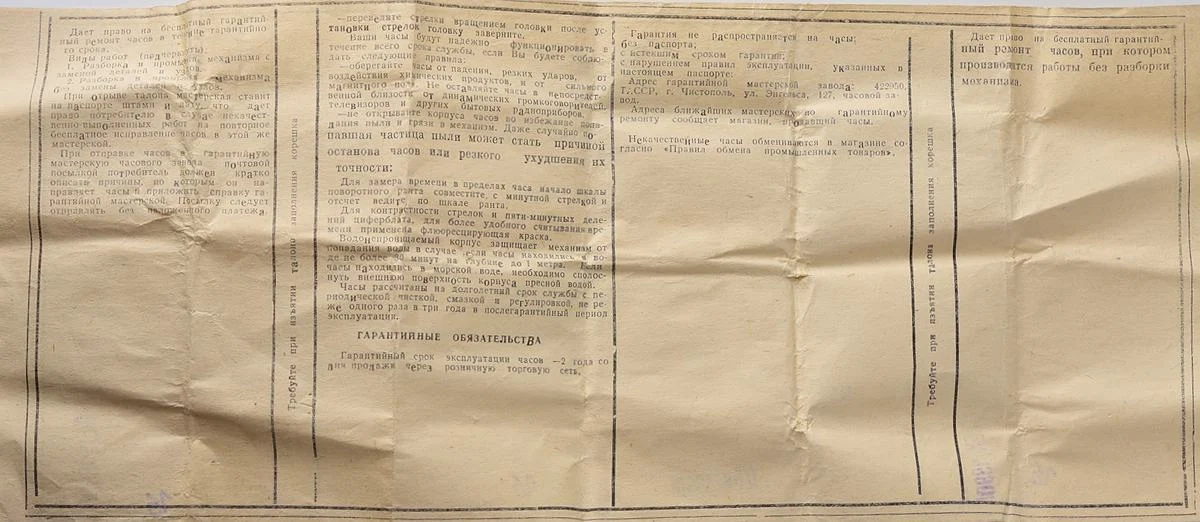 Дает право на бесплатный гарантий-
ный ремонт часов в течение гарантийно
го срока.
Виды работ (подчеркнуть):
1. Разборка и промывка механизма с
заменой деталей и узлов.
2. Разборка и промывка механизма
без замены деталей и узлов.
При отрыве талона мастерская ставит
на паспорте штамп и дату, что дает
право потребителю в случае некачест-
венно-выполненных работ на повторное
бесплатное исправление часов в этой же
мастерской.
При отправке часов в гарантийную
мастерскую часового завода почтовой
посылкой потребитель должен кратко
описать причины, по которым он на-
правляет часы и приложить справку га-
рантийной мастерской. Посылку следует
отправлять без наложенного платежа.
Требуйте при изъятии талона заполнения корешка
—переведите стрелки вращением головки после ус-
тановки стрелок головку заверните.
Ваши часы будут надежно функционировать в
течение всего срока службы, если Вы будете соблю-
дать следующие правила:
—оберегайте часы от падения, резких ударов, от
воздействия химических продуктов, и от сильного
магнитного поля. Не оставляйте часы в непосредст-
венной близости от динамических громкоговорителей,
телевизоров и других бытовых радиоприборов.
—не открывайте корпуса часов во избежание попа-
дания пыли и грязи в механизм. Даже случайно по-
павшая частица пыли может стать причиной
останова часов или резкого ухудшения их
точности:
Для замера времени в пределах часа начало шкалы
поворотного ранта совместите, с минутной стрелкой и
отсчет ведите по шкале ранта.
Для контрастности стрелок и пяти-минутных деле-
ний циферблата, для более удобного считывания вре-
мени применена флюоресцирующая краска.
Водонепроницаемый корпус защищает механизм от
попадания воды в случае если часы находились в во-
де не более 30 минут на глубине до 1 метра. Если
часы находились в морской воде, необходимо сполос-
нуть внешнюю поверхность корпуса пресной водой.
Часы рассчитаны на долголетний срок службы с пе-
риодической чисткой, смазкой и регулировкой, не ре-
же одного раза в три года в послегарантийный период
эксплуатации.
ГАРАНТИЙНЫЕ ОБЯЗАТЕЛЬСТВА
Гарантийный срок эксплуатации часов —2 года со
дня продажи через розничную торговую сеть.
Гарантия не распространяется на часы;
без паспорта;
с истекшим сроком гарантии;
с нарушением правил эксплуатации, указанных в
настоящем паспорте:
Адрес гарантийной мастерской завода: 422950,
Т.ССР, г. Чистополь, ул. Энгельса, 127, часовой за-
вод.
Адреса ближайших мастерских по гарантийному
ремонту сообщает магазин, продавший часы.
Некачественные часы обмениваются в магазине со-
гласно «Правил обмена промышленных товаров».
Требуйте при изъятии талона заполнения корешка
Дает право на бесплатный гарантий-
ный ремонт часов, при котором
производятся работы без разборки
механизма.